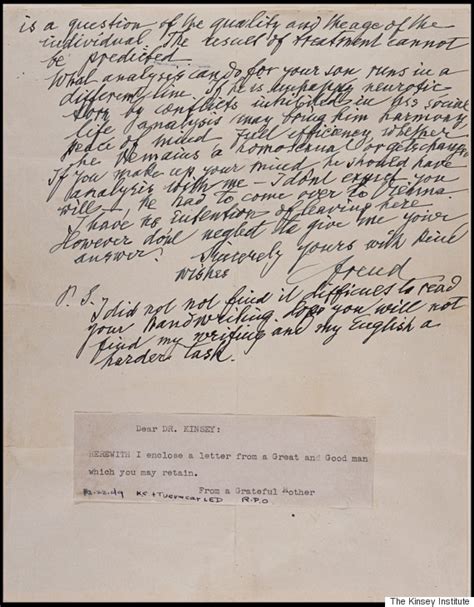 is a question of the quality and the age of the
individual. The result of treatment cannot
be predicted.
What analysis can do for your son runs in a
different line. If he is unhappy, neurotic
torn by conflicts, inhibited in his social
life, analysis may bring him harmony
peace of mind full efficiency whether
he remains a homosexual or gets changed
If you make up your mind he should have
analysis with me — I dont expect you
will —, he had to come over to Vienna
I have no intention of leaving here.
However dont neglect to give me your
answer.
Sincerely yours with kind
wishes
Freud
P. S.
I did not not find it difficult to read
your handwriting. Hope you will not
find my writing and my English a
harder task.
Dear DR. KINSEY:
HEREWITH I enclose a letter from a Great and Good man
which you may retain.
From a Grateful Mother
KC + Tucumcari LED R.P.O
The Kinsey Institute